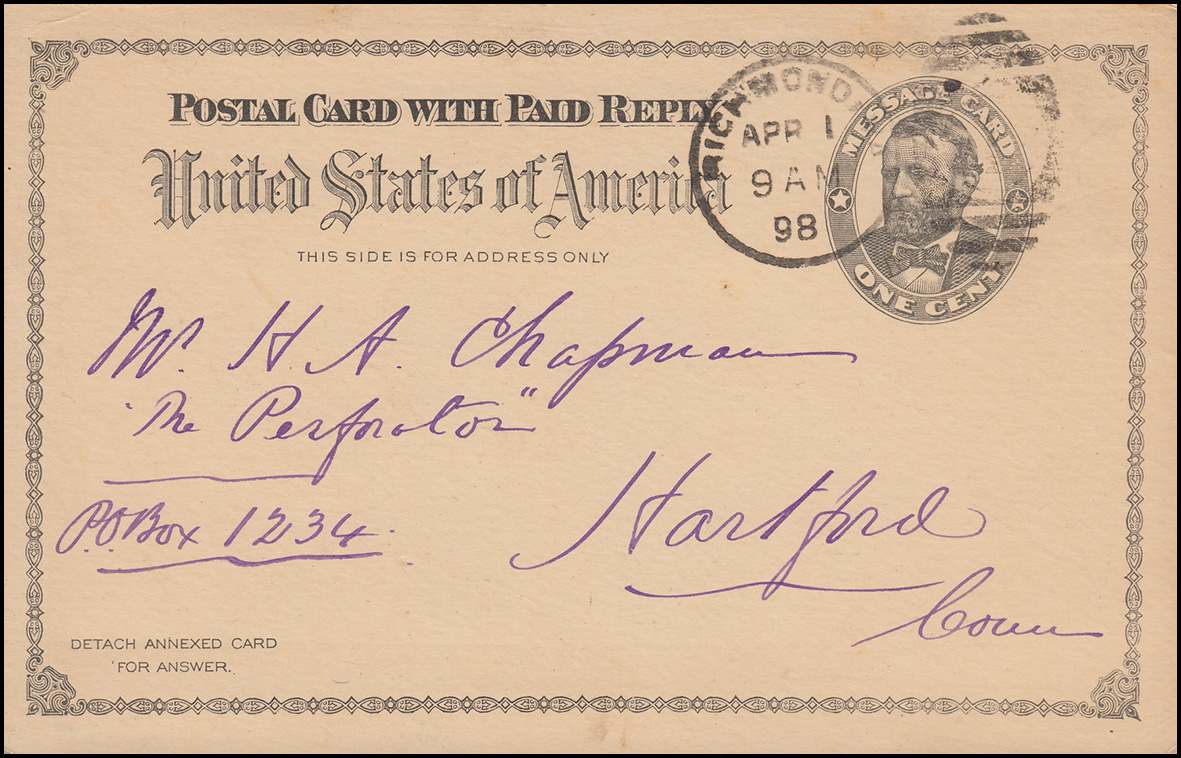 POSTAL CARD WITH PAID REPLY
United States of America
THIS SIDE IS FOR ADDRESS ONLY
RICHMOND
APR 1
9 AM
98
MESSAGE CARD
ONE CENT
Mr. H. A. Chapman
"The Perforator"
P.O. Box 1234.
Hartford
Conn
DETACH ANNEXED CARD
FOR ANSWER.